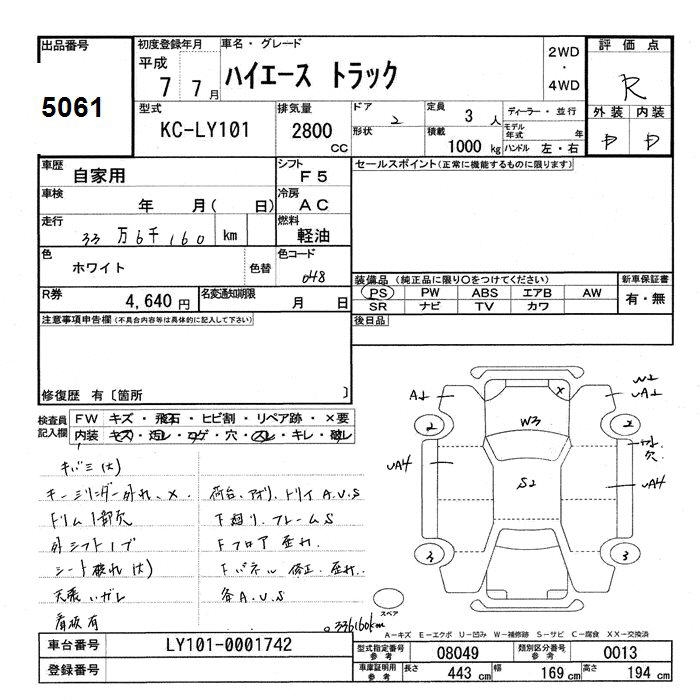 出品番号
5061
初度登録年月
平成
7 7月
車名・グレード
ハイエース トラック
2WD
・
4WD
評価点
R
外装 内装
D D
型式
KC-LY101
排気量
2800 CC
ドア 2
形状
定員 3 人
積載 1000 kg
ディーラー・並行
モデル年式 年
ハンドル 左・右
車歴 自家用
シフト F5
車検 年 月( 日)
冷房 AC
走行 33万6千160 km
燃料 軽油
色 ホワイト 色替
色コード 048
R券 4,640円
名変通知期限 月 日
セールスポイント(正常に機能するものに限ります)
装備品(純正品に限り○をつけてください)
PS PW ABS エアB AW
SR ナビ TV カワ
新車保証書
有・無
後日品
注意事項申告欄(不具合内容等は具体的に記入して下さい)
修復歴 有〔箇所 〕
検査員記入欄
FW キズ・飛石・ヒビ割・リペア跡・×要
内装 キズ・汚レ・コゲ・穴・スレ・キレ・破レ
キバミ(大)
キーシリンダー外れ、×
ドリム1部欠
外シフトノブ
シート破れ(大)
天張いガレ
看板有
荷台、アオリ、トリイ A.U.S
下廻り、フレームS
Fフロア歪れ.
Fパネル 修正、歪れ.
各A.U.S
336160km
A1
W3
X
W2
UA1
2
2
欠
UA4
S2
UA4
3
3
スペア
A－キズ E－エクボ U－凹み W－補修跡 S－サビ C－腐食 XX－交換済
車台番号 LY101-0001742
登録番号
型式指定番号 参考 08049
類別区分番号 参考 0013
車庫証明用 参考 長さ 443 cm 幅 169 cm 高さ 194 cm